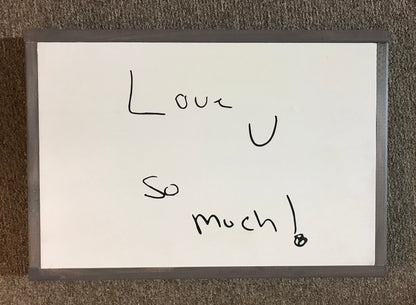 Love
U
So
much!